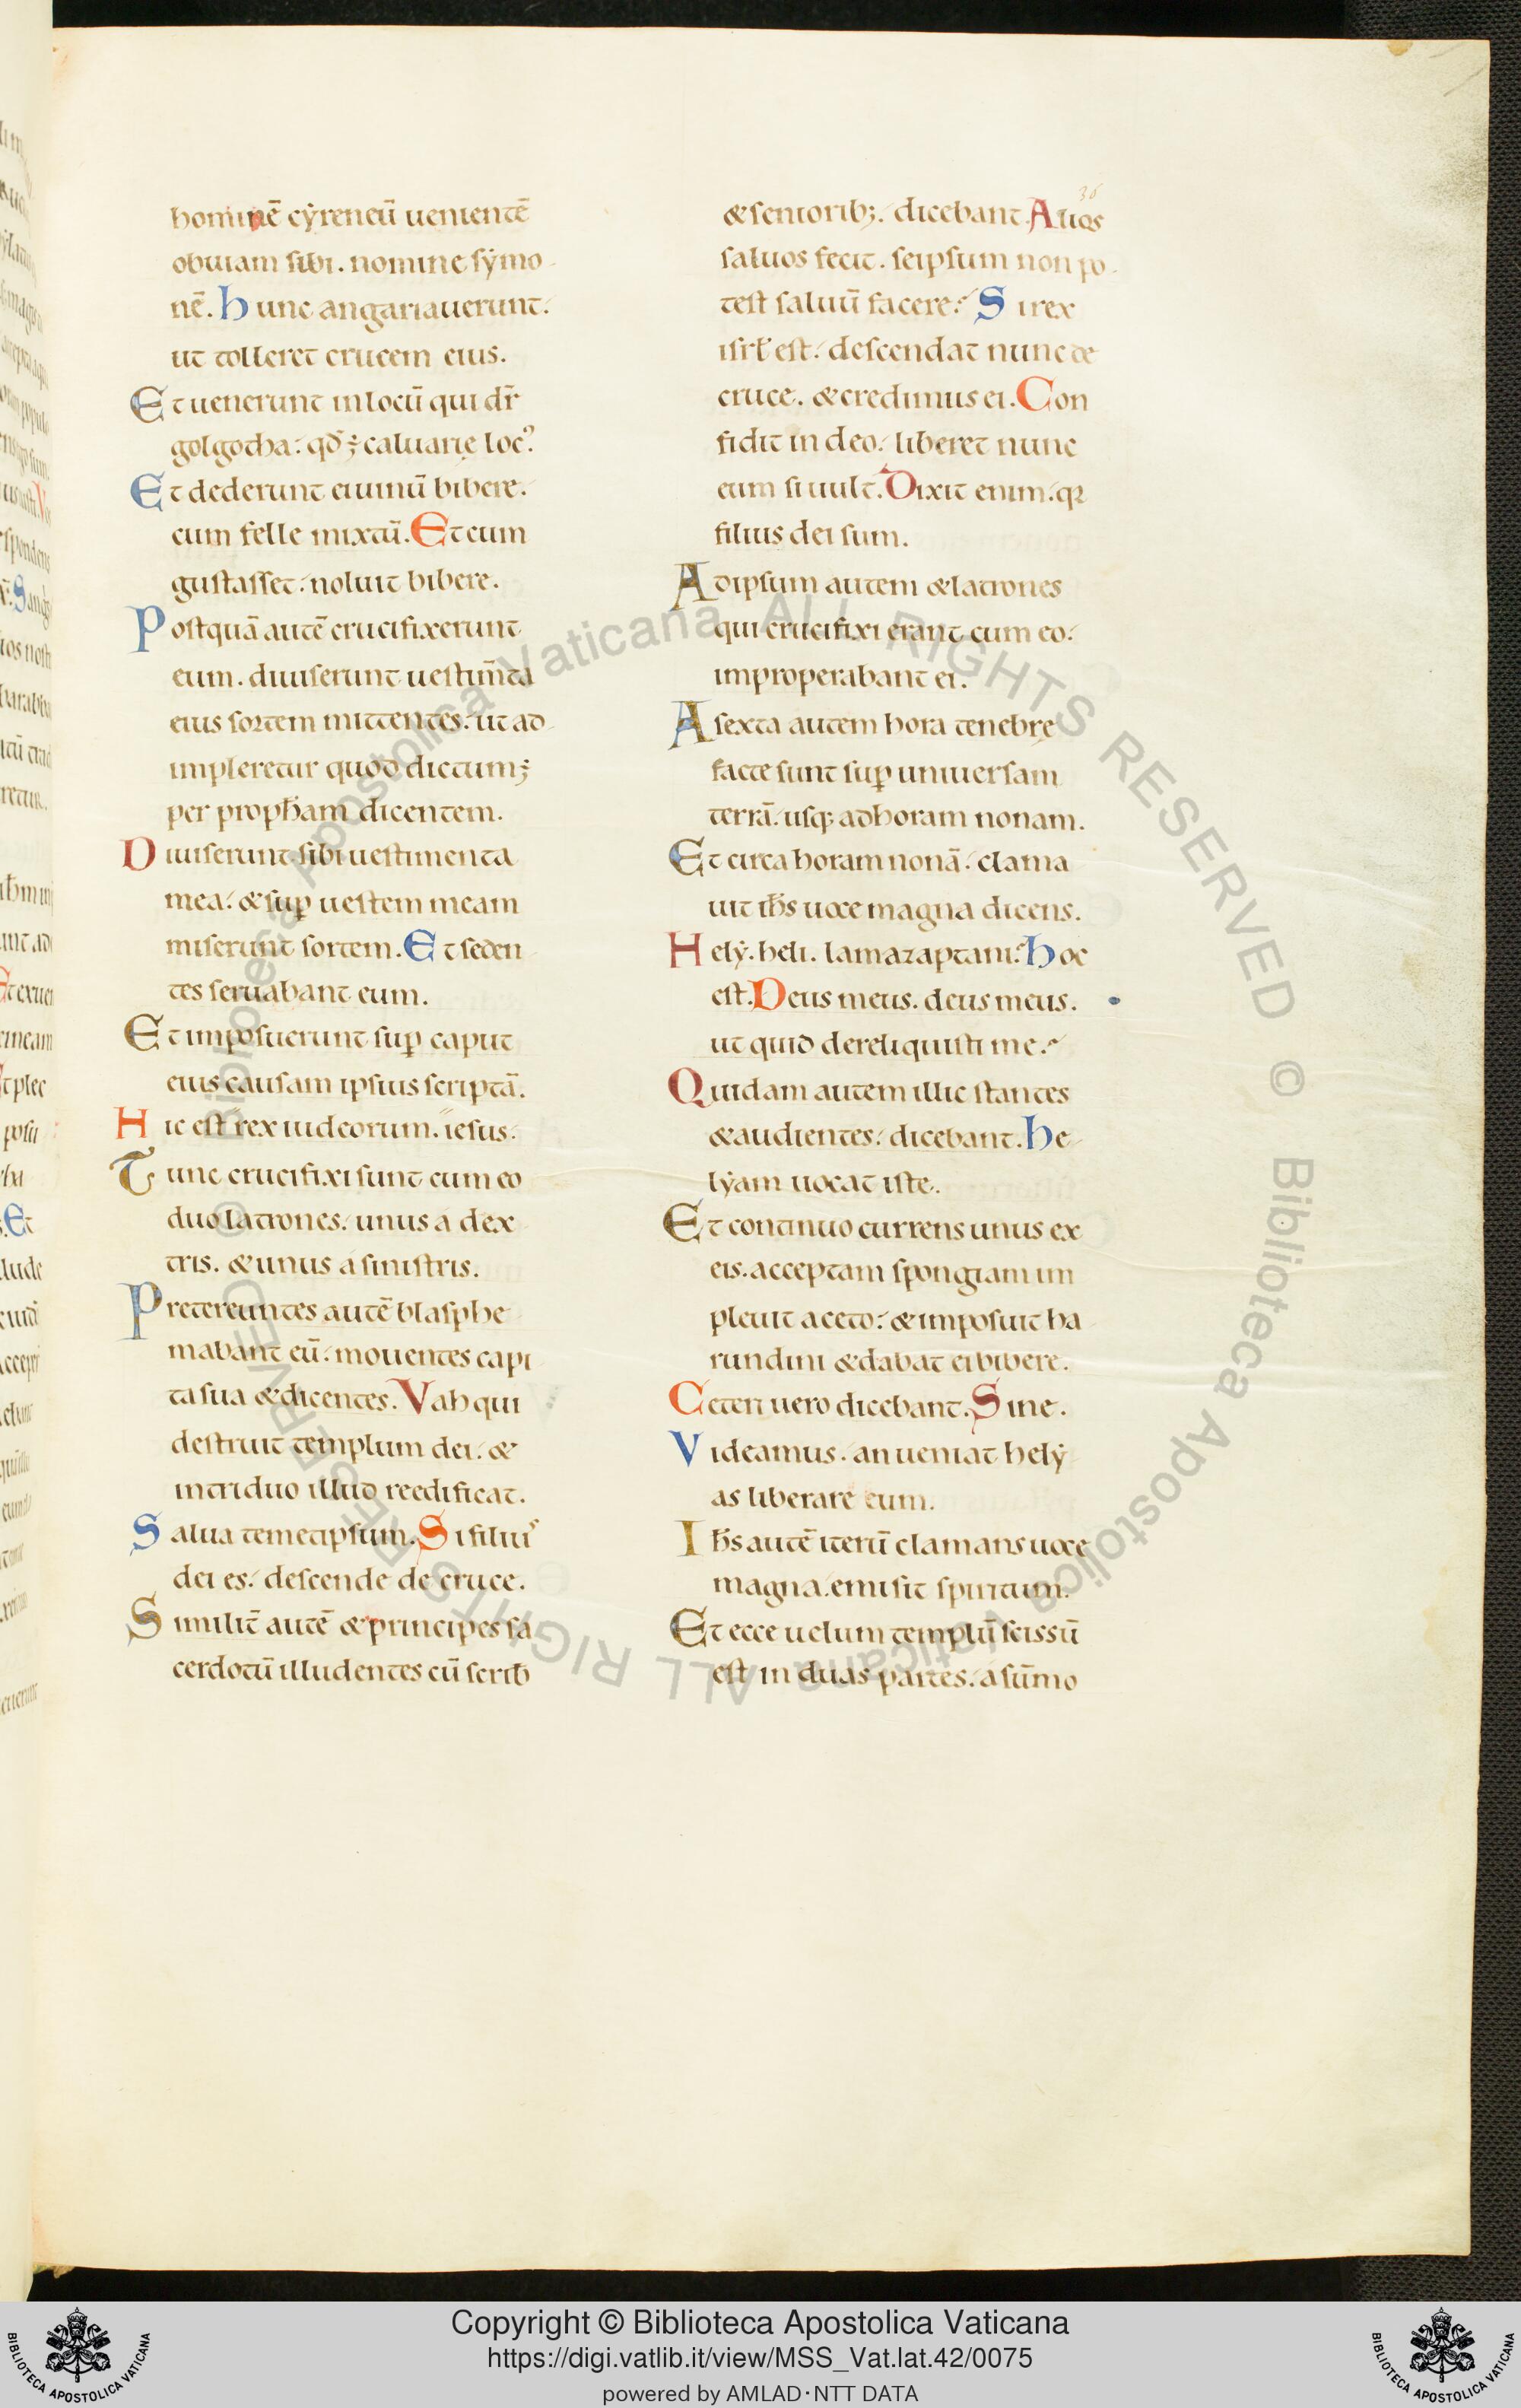 36
hominē cẏreneū uenientē
obuiam sibi. nomine sẏmo
nē. hunc angariauerunt.
ut tolleret crucem eius.
Et uenerunt in locū qui dr̄
golgotha. qđ ÷ caluarię locꝰ.
Et dederunt ei uinū bibere.
cum felle mixtū. Et cum
gustasset. noluit bibere.
Postquā autē crucifixerunt
eum. diuiserunt uestim̄ta
eius sortem mittentes. ut ad
impleretur quod dictum ÷
per propħam dicentem.
Diuiserunt sibi uestimenta
mea. & suꝑ uestem meam
miserunt sortem. Et seden
tes seruabant eum.
Et imposuerunt suꝑ caput
eius causam ipsius scriptā.
Hic est rex iudeorum. iesus.
Tunc crucifixi sunt cum eo
duo latrones. unus a dex
tris. & unus a sinistris.
Pretereuntes autē blasphe
mabant eū. mouentes capi
ta sua & dicentes. Vah qui
destruit templum dei. &
in triduo illud reedificat.
Salua temetipsum. Si filius
dei es. descende de cruce.
Similit̄ autē & principes sa
cerdotū illudentes cū scrib̄
& seniorib;. dicebant. Alios
saluos fecit. seipsum non po
test saluū facere. Si rex
isrł est. descendat nunc de
cruce. & credimus ei. Con
fidit in deo. liberet nunc
eum si uult. Dixit enim. qꝛ
filius dei sum.
Adipsum autem & latrones
qui crucifixi erant cum eo.
improperabant ei.
A sexta autem hora tenebrę
facte sunt suꝑ uniuersam
terrā. usq; ad horam nonam.
Et circa horam nonā. clama
uit iħs uoce magna dicens.
Helẏ. heli. lamazaptani. hoc
est. Deus meus. deus meus.
ut quid dereliquisti me.
Quidam autem illic stantes
& audientes. dicebant. he
lẏam uocat iste.
Et continuo currens unus ex
eis. acceptam spongiam im
pleuit aceto. & imposuit ha
rundini & dabat ei bibere.
Ceteri uero dicebant. Sine.
Videamus. an ueniat helẏ
as liberare eum.
Iħs autē iterū clamans uoce
magna. emisit spiritum.
Et ecce uelum templū scissū
est in duas partes. a sūmo
© Biblioteca Apostolica Vaticana ALL RIGHTS RESERVED © Biblioteca Apostolica Vaticana ALL RIGHTS RESERVED
BIBLIOTECA APOSTOLICA VATICANA
Copyright © Biblioteca Apostolica Vaticana
https://digi.vatlib.it/view/MSS_Vat.lat.42/0075
powered by AMLAD・NTT DATA
BIBLIOTECA APOSTOLICA VATICANA